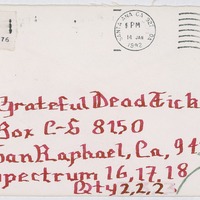 SANTA ANA CA
1 PM
14 JAN
1992
76
Grateful Dead Tick
Box C-S 8150
San Raphael, Ca, 94
Spectrum 16,17,18
Qty 2,2,2